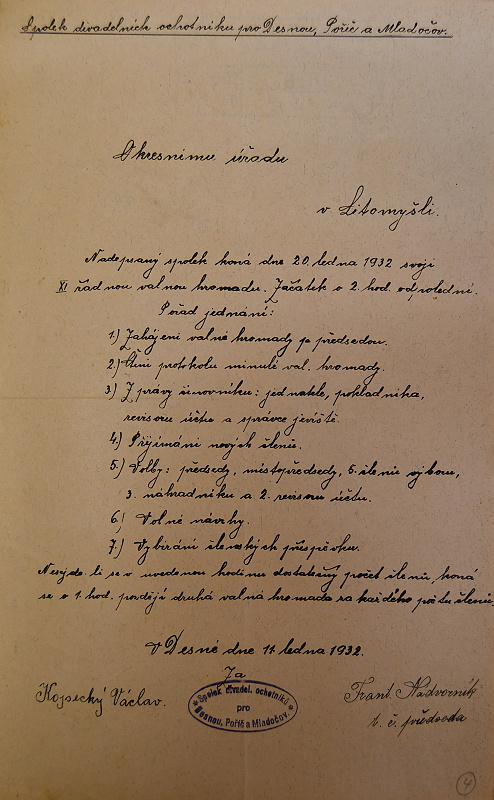 Spolek divadelních ochotníků pro Desnou, Poříč a Mladočov.
Okresnímu úřadu
v Litomyšli.
Nadepsaný spolek koná dne 20. ledna 1932 svoji
XI řádnou valnou hromadu. Začátek o 2. hod. odpolední.
Pořad jednání:
1.) Zahájení valné hromady p. předsedou.
2.) Čtení protokolu minulé val. hromady.
3.) Zprávy činovníků: jednatele, pokladníka,
revisorů účtů a správce jeviště.
4.) Přijímání nových členů.
5.) Volby: předsedy, místopředsedy, 5. členů výboru,
3. náhradníků a 2. revisorů účtů.
6.) Volné návrhy.
7.) Vybírání členských příspěvků.
Nesejde-li se v uvedenou hodinu dostatečný počet členů, koná
se o 1. hod. později druhá valná hromada za každého počtu členů.
V Desné dne 11. ledna 1932.
Za
Spolek divadel. ochotníků
pro
Desnou, Poříč a Mladočov.
Kopecký Václav.
Frant. Nadvorník
t. č. předseda
4